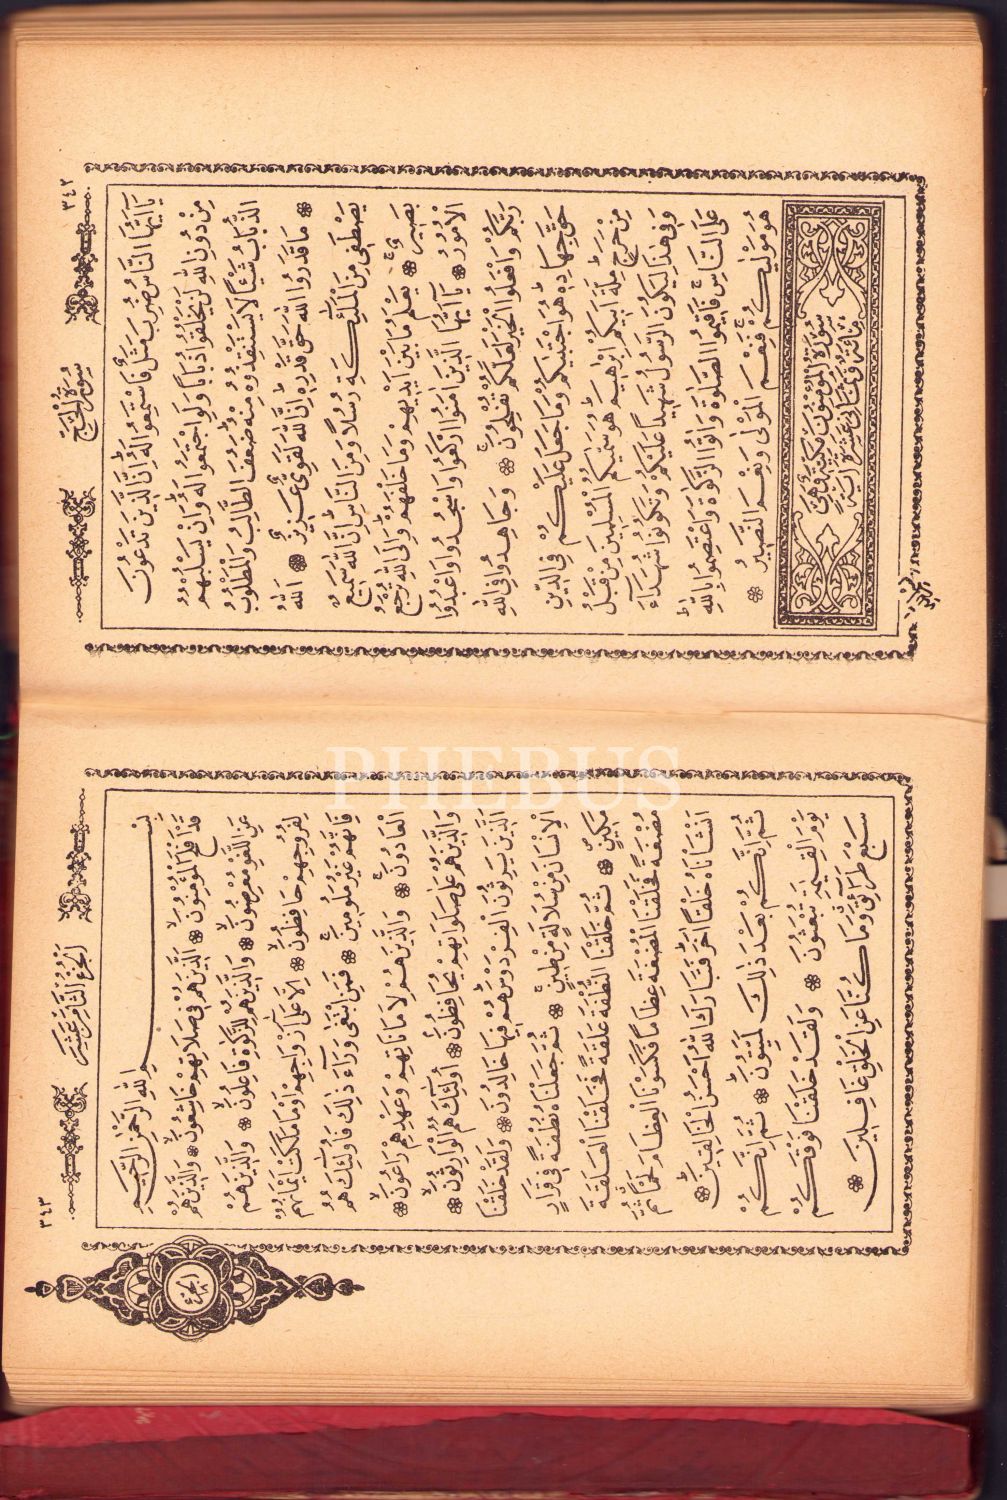 ٣٤٢
سُورَةُ الْحَجِّ
يَا أَيُّهَا النَّاسُ ضُرِبَ مَثَلٌ فَاسْتَمِعُوا لَهُ إِنَّ الَّذِينَ تَدْعُونَ
مِنْ دُونِ اللّٰهِ لَنْ يَخْلُقُوا ذُبَابًا وَلَوِ اجْتَمَعُوا لَهُ وَإِنْ يَسْلُبْهُمُ
الذُّبَابُ شَيْئًا لَا يَسْتَنْقِذُوهُ مِنْهُ ضَعُفَ الطَّالِبُ وَالْمَطْلُوبُ
❁ مَا قَدَرُوا اللّٰهَ حَقَّ قَدْرِهِ إِنَّ اللّٰهَ لَقَوِيٌّ عَزِيزٌ ❁ اَللّٰهُ
يَصْطَفِي مِنَ الْمَلٰئِكَةِ رُسُلًا وَمِنَ النَّاسِ إِنَّ اللّٰهَ سَمِيعٌ
بَصِيرٌ ❁ يَعْلَمُ مَا بَيْنَ أَيْدِيهِمْ وَمَا خَلْفَهُمْ وَإِلَى اللّٰهِ تُرْجَعُ
الْأُمُورُ ❁ يَا أَيُّهَا الَّذِينَ اٰمَنُوا ارْكَعُوا وَاسْجُدُوا وَاعْبُدُوا
رَبَّكُمْ وَافْعَلُوا الْخَيْرَ لَعَلَّكُمْ تُفْلِحُونَ ❁ وَجَاهِدُوا فِي اللّٰهِ
حَقَّ جِهَادِهِ هُوَ اجْتَبٰيكُمْ وَمَا جَعَلَ عَلَيْكُمْ فِي الدِّينِ
مِنْ حَرَجٍ مِلَّةَ أَبِيكُمْ إِبْرٰهِيمَ هُوَ سَمّٰيكُمُ الْمُسْلِمِينَ مِنْ قَبْلُ
وَفِي هٰذَا لِيَكُونَ الرَّسُولُ شَهِيدًا عَلَيْكُمْ وَتَكُونُوا شُهَدَاءَ
عَلَى النَّاسِ فَأَقِيمُوا الصَّلٰوةَ وَاٰتُوا الزَّكٰوةَ وَاعْتَصِمُوا بِاللّٰهِ
هُوَ مَوْلٰيكُمْ فَنِعْمَ الْمَوْلٰى وَنِعْمَ النَّصِيرُ ❁
سُورَةُ الْمُؤْمِنُونَ مَكِّيَّةٌ وَهِيَ
مِائَةٌ وَثَمَانِي عَشْرَةَ اٰيَةً
PHEBUS
اَلْجُزْءُ الثَّامِنُ عَشَرَ
٣٤٣
بِسْمِ اللّٰهِ الرَّحْمٰنِ الرَّحِيمِ
قَدْ أَفْلَحَ الْمُؤْمِنُونَ ❁ اَلَّذِينَ هُمْ فِي صَلَاتِهِمْ خَاشِعُونَ ❁ وَالَّذِينَ هُمْ
عَنِ اللَّغْوِ مُعْرِضُونَ ❁ وَالَّذِينَ هُمْ لِلزَّكٰوةِ فَاعِلُونَ ❁ وَالَّذِينَ هُمْ
لِفُرُوجِهِمْ حَافِظُونَ ❁ إِلَّا عَلٰى أَزْوَاجِهِمْ أَوْ مَا مَلَكَتْ أَيْمَانُهُمْ
فَإِنَّهُمْ غَيْرُ مَلُومِينَ ❁ فَمَنِ ابْتَغٰى وَرَاءَ ذٰلِكَ فَأُولٰئِكَ هُمُ
الْعَادُونَ ❁ وَالَّذِينَ هُمْ لِأَمَانَاتِهِمْ وَعَهْدِهِمْ رَاعُونَ ❁
وَالَّذِينَ هُمْ عَلٰى صَلَوَاتِهِمْ يُحَافِظُونَ ❁ أُولٰئِكَ هُمُ الْوَارِثُونَ ❁
اَلَّذِينَ يَرِثُونَ الْفِرْدَوْسَ هُمْ فِيهَا خَالِدُونَ ❁ وَلَقَدْ خَلَقْنَا
الْإِنْسَانَ مِنْ سُلَالَةٍ مِنْ طِينٍ ❁ ثُمَّ جَعَلْنَاهُ نُطْفَةً فِي قَرَارٍ
مَكِينٍ ❁ ثُمَّ خَلَقْنَا النُّطْفَةَ عَلَقَةً فَخَلَقْنَا الْعَلَقَةَ
مُضْغَةً فَخَلَقْنَا الْمُضْغَةَ عِظَامًا فَكَسَوْنَا الْعِظَامَ لَحْمًا ثُمَّ
أَنْشَأْنَاهُ خَلْقًا اٰخَرَ فَتَبَارَكَ اللّٰهُ أَحْسَنُ الْخَالِقِينَ ❁
ثُمَّ إِنَّكُمْ بَعْدَ ذٰلِكَ لَمَيِّتُونَ ❁ ثُمَّ إِنَّكُمْ
يَوْمَ الْقِيٰمَةِ تُبْعَثُونَ ❁ وَلَقَدْ خَلَقْنَا فَوْقَكُمْ
سَبْعَ طَرَائِقَ وَمَا كُنَّا عَنِ الْخَلْقِ غَافِلِينَ ❁
الجزء